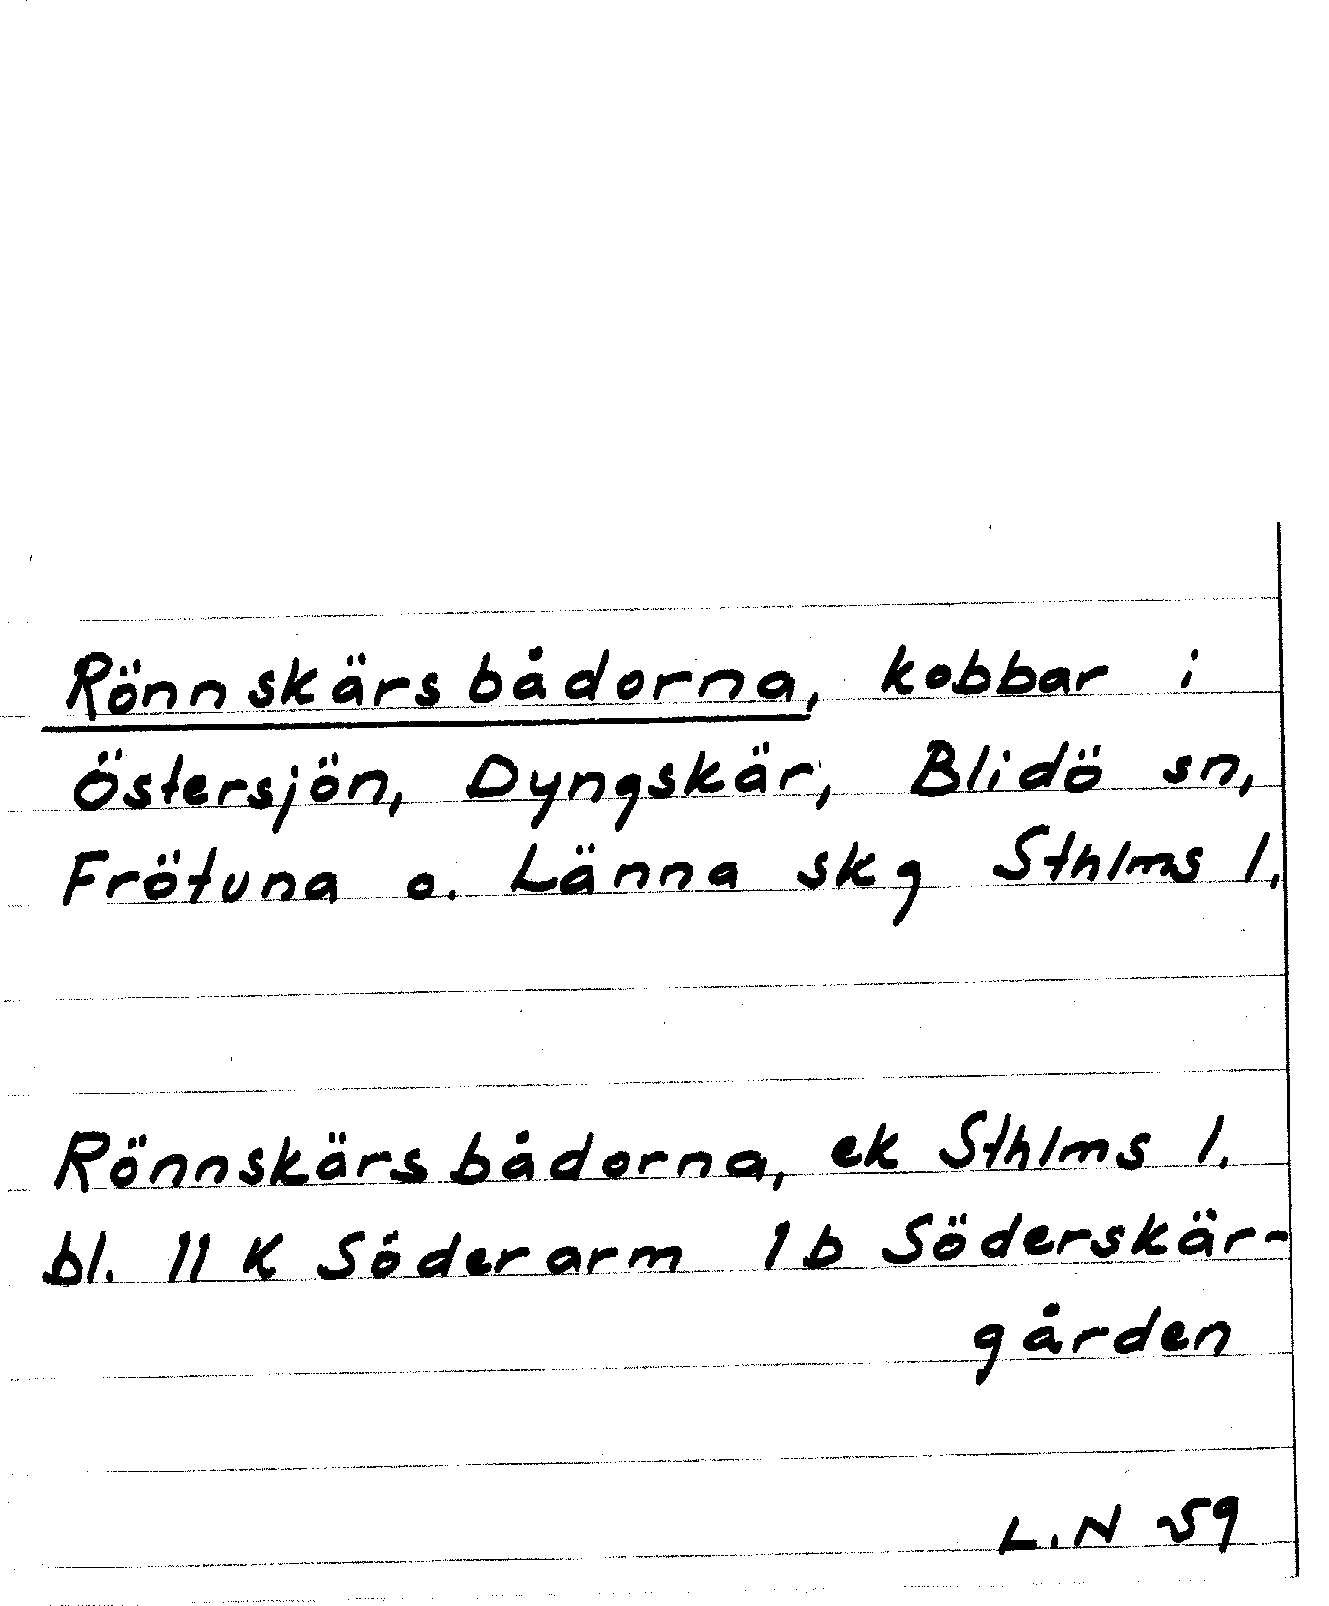 Rönnskärsbådorna, kobbar i
Östersjön, Dyngskär, Blidö sn,
Frötuna o. Länna skg Sthlms l.
Rönnskärsbådorna, ek Sthlms l.
bl. 11 K Söderarm 1 b Söderskär-
gården
L.N 59